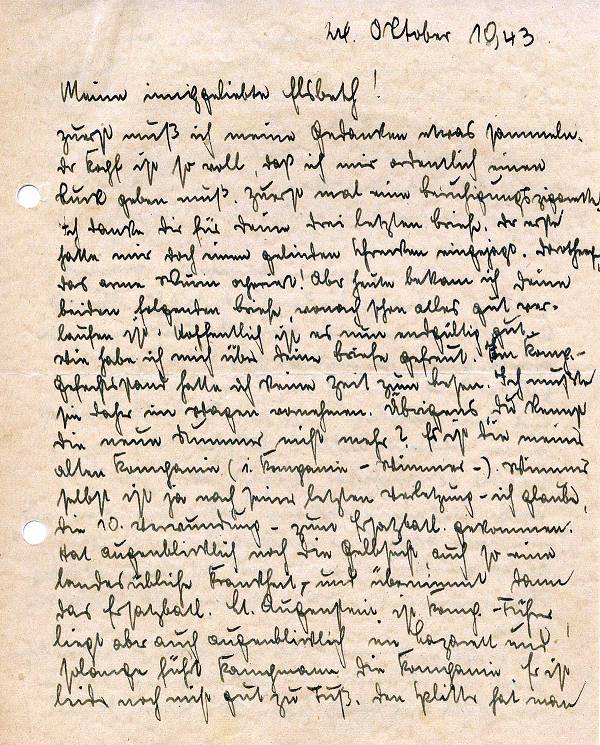 24. Oktober 1943
Meine inniggeliebte Elsbeth!
Zuerst muß ich meine Gedanken etwas sammeln.
Der Kopf ist so voll, daß ich mir ordentlich einen
Ruck geben muß. Zuerst mal eine Beruhigungszigarette.
Ich danke Dir für Deine drei letzten Briefe. Der erste
hatte mir doch einen gelinden Schrecken eingejagt. Dorothee,
das arme operiert! Aber heute bekam ich Deine
beiden folgenden Briefe, wonach schon alles gut ver-
laufen ist. Hoffentlich ist es nun endgültig gut.
Wie habe ich mich über Deine Briefe gefreut. Im Komp.-
Gefechtsstand hatte ich keine Zeit zum Lesen. Ich mußte
sie daher im Wagen vornehmen. Übrigens, Du kennst
die neue Nummer nicht mehr? Es ist die meiner
alten Kompanie (1. Kompanie - Wimmer -). Wimmer
selbst ist ja nach seiner letzten Verletzung - ich glaube,
die 10. Verwundung - zum Ersatzbatl. gekommen.
Hat augenblicklich noch die Gelbsucht, auch so eine
landesübliche Krankheit, und übernimmt dann
das Ersatzbatl. Lt. Augenstein ist Komp.-Führer
liegt aber auch augenblicklich im Lazarett und
solange führt Kampmann die Kompanie. Er ist
leider noch nicht gut zu Fuß. Den Splitter hat man